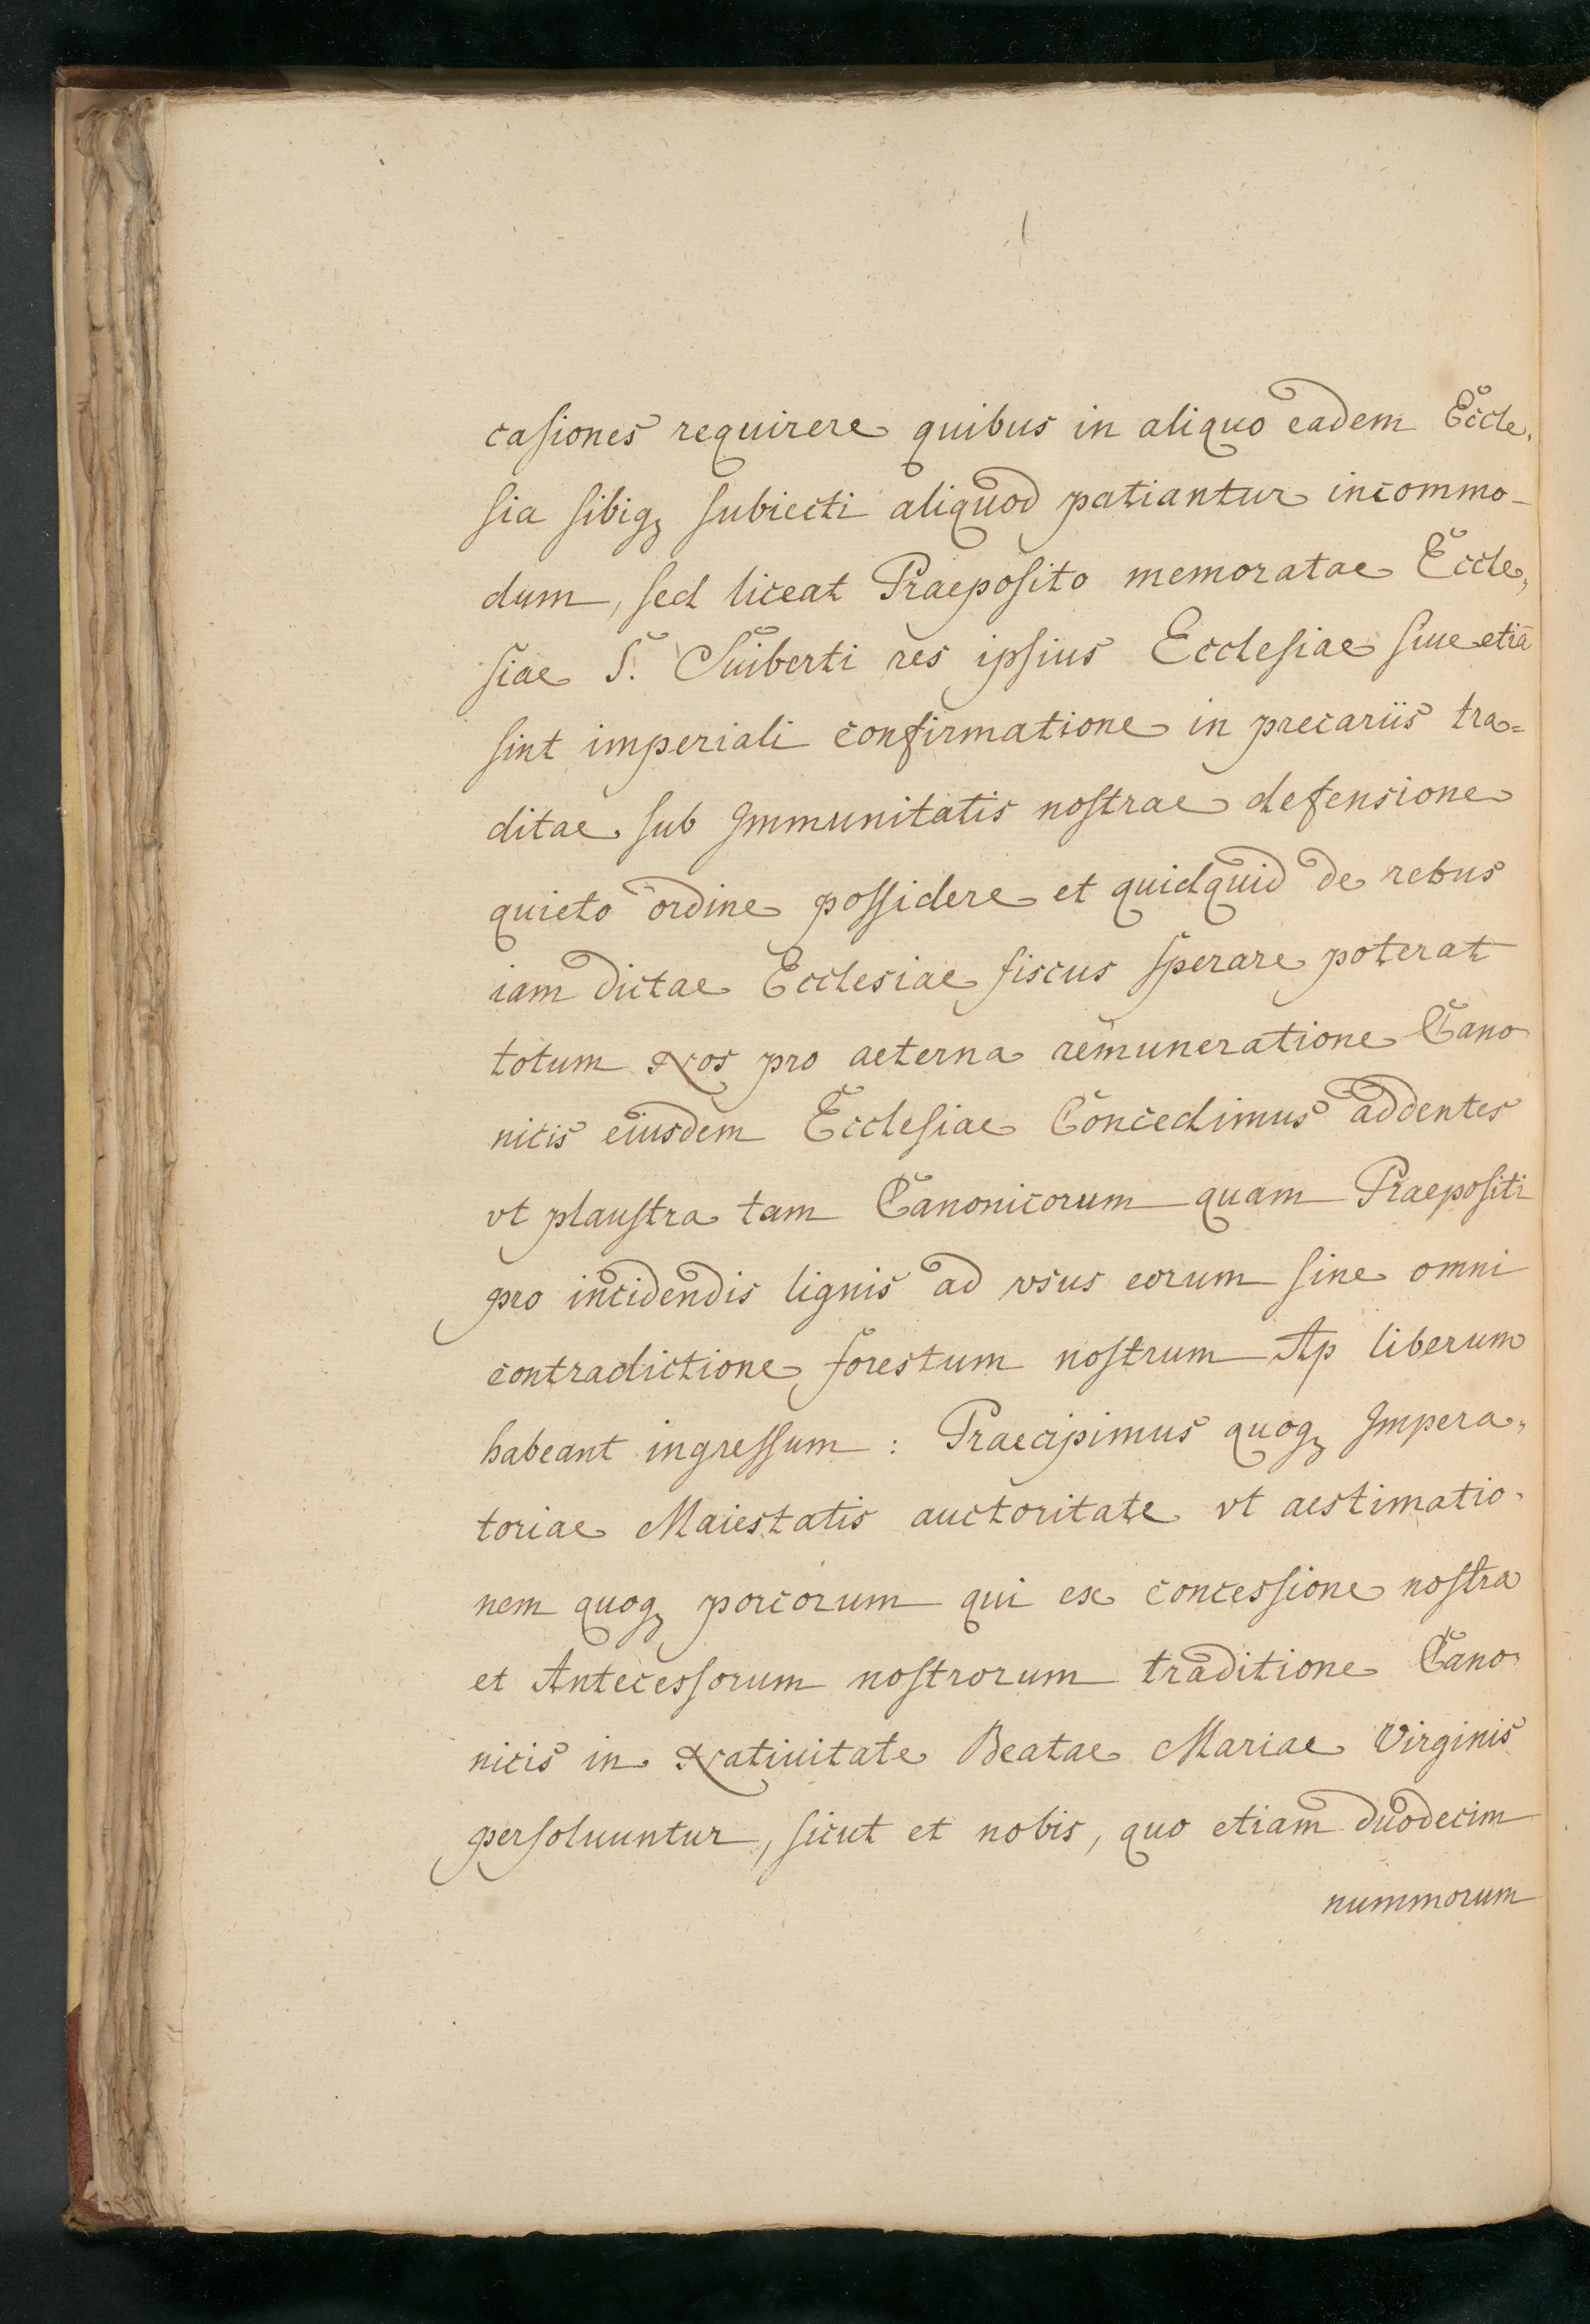 casiones requirere quibus in aliquo eadem Eccle„
sia sibiq; subiecti aliquod patiantur incommo-
dum, sed liceat Praeposito memoratae Eccle„
siae S. Suiberti res ipsius Ecclesiae siue etiā
sint imperiali confirmatione in precariis tra=
ditae sub Immunitatis nostrae defensione
quieto ordine possidere et quidquid de rebus
iam dictae Ecclesiae fiscus sperare poterat
totum Nos pro aeterna remuneratione Cano
nicis eiusdem Ecclesiae Concedimus addentes
vt plaustra tam Canonicorum quam Praepositi
pro incidendis lignis ad vsus eorum sine omni
contradictione forestum nostrum Ap liberum
habeant ingressum : Praecipimus quoq; Impera„
toriae Maiestatis auctoritate vt aestimatio-
nem quoq; porcorum qui ex concessione nostra
et Antecessorum nostrorum traditione Cano-
nicis in Natiuitate Beatae Mariae Virginis
persoluuntur, sicut et nobis, quo etiam duodecim
nummorum